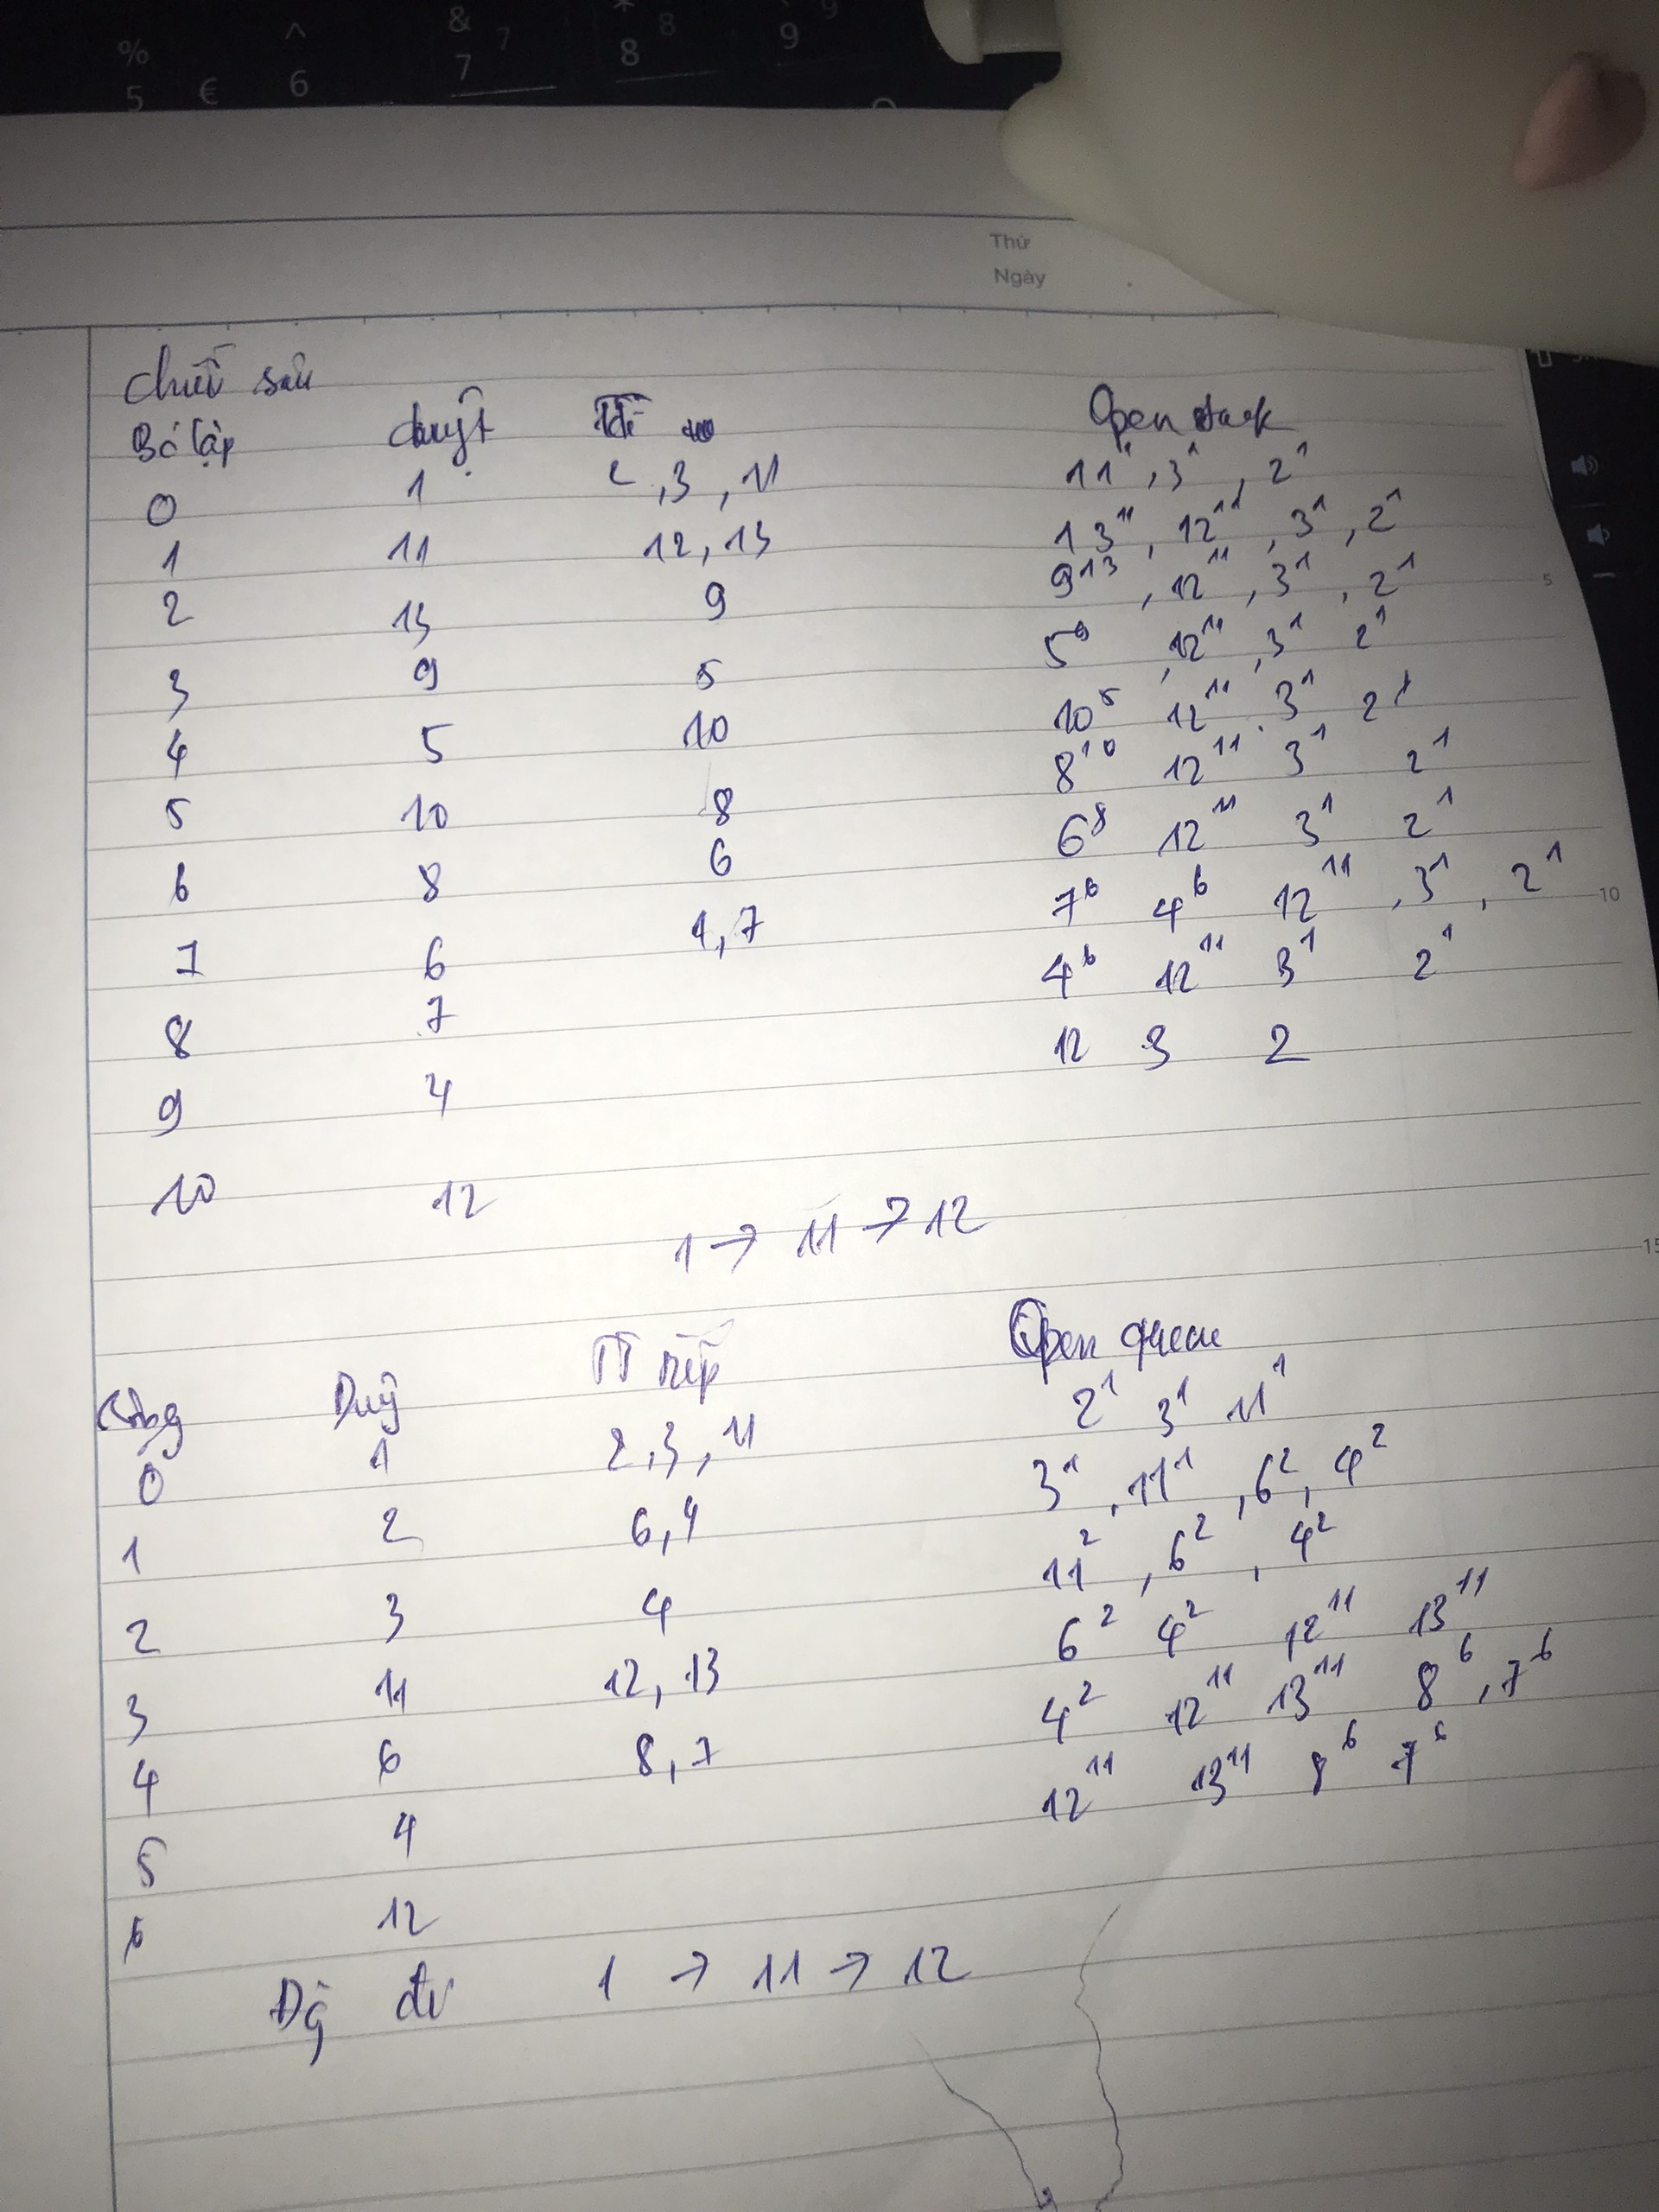 % ^ & 7 * 8 9
5 € 6 7 8 9
Thứ
Ngày
chiều sâu
Số lặp duyệt Open stack
0 1 2, 3, 11 11¹, 3¹, 2¹
1 11 12, 13 13¹¹, 12¹¹, 3¹, 2¹
2 13 9 9¹³, 12¹¹, 3¹, 2¹
5
3 9 5 5⁹, 12¹¹, 3¹ 2¹
4 5 10 10⁵ 12¹¹ 3¹ 2¹
5 10 8 8¹⁰ 12¹¹ 3¹ 2¹
6 8 6 6⁸ 12¹¹ 3¹ 2¹
7 6 4, 7 7⁶ 4⁶ 12¹¹, 3¹, 2¹
10
8 7 4⁶ 12¹¹ 3¹ 2¹
9 4 12 3 2
10 12
1 → 11 → 12
15
Rộng Duyệt Open queue
0 1 2, 3, 11 2¹ 3¹ 11¹
1 2 6, 4 3¹, 11¹, 6², 4²
2 3 4 11², 6², 4²
3 11 12, 13 6² 4² 12¹¹ 13¹¹
4 6 8, 7 4² 12¹¹ 13¹¹ 8⁶, 7⁶
5 4 12¹¹ 13¹¹ 8⁶ 7⁶
6 12
Đg đi 1 → 11 → 12